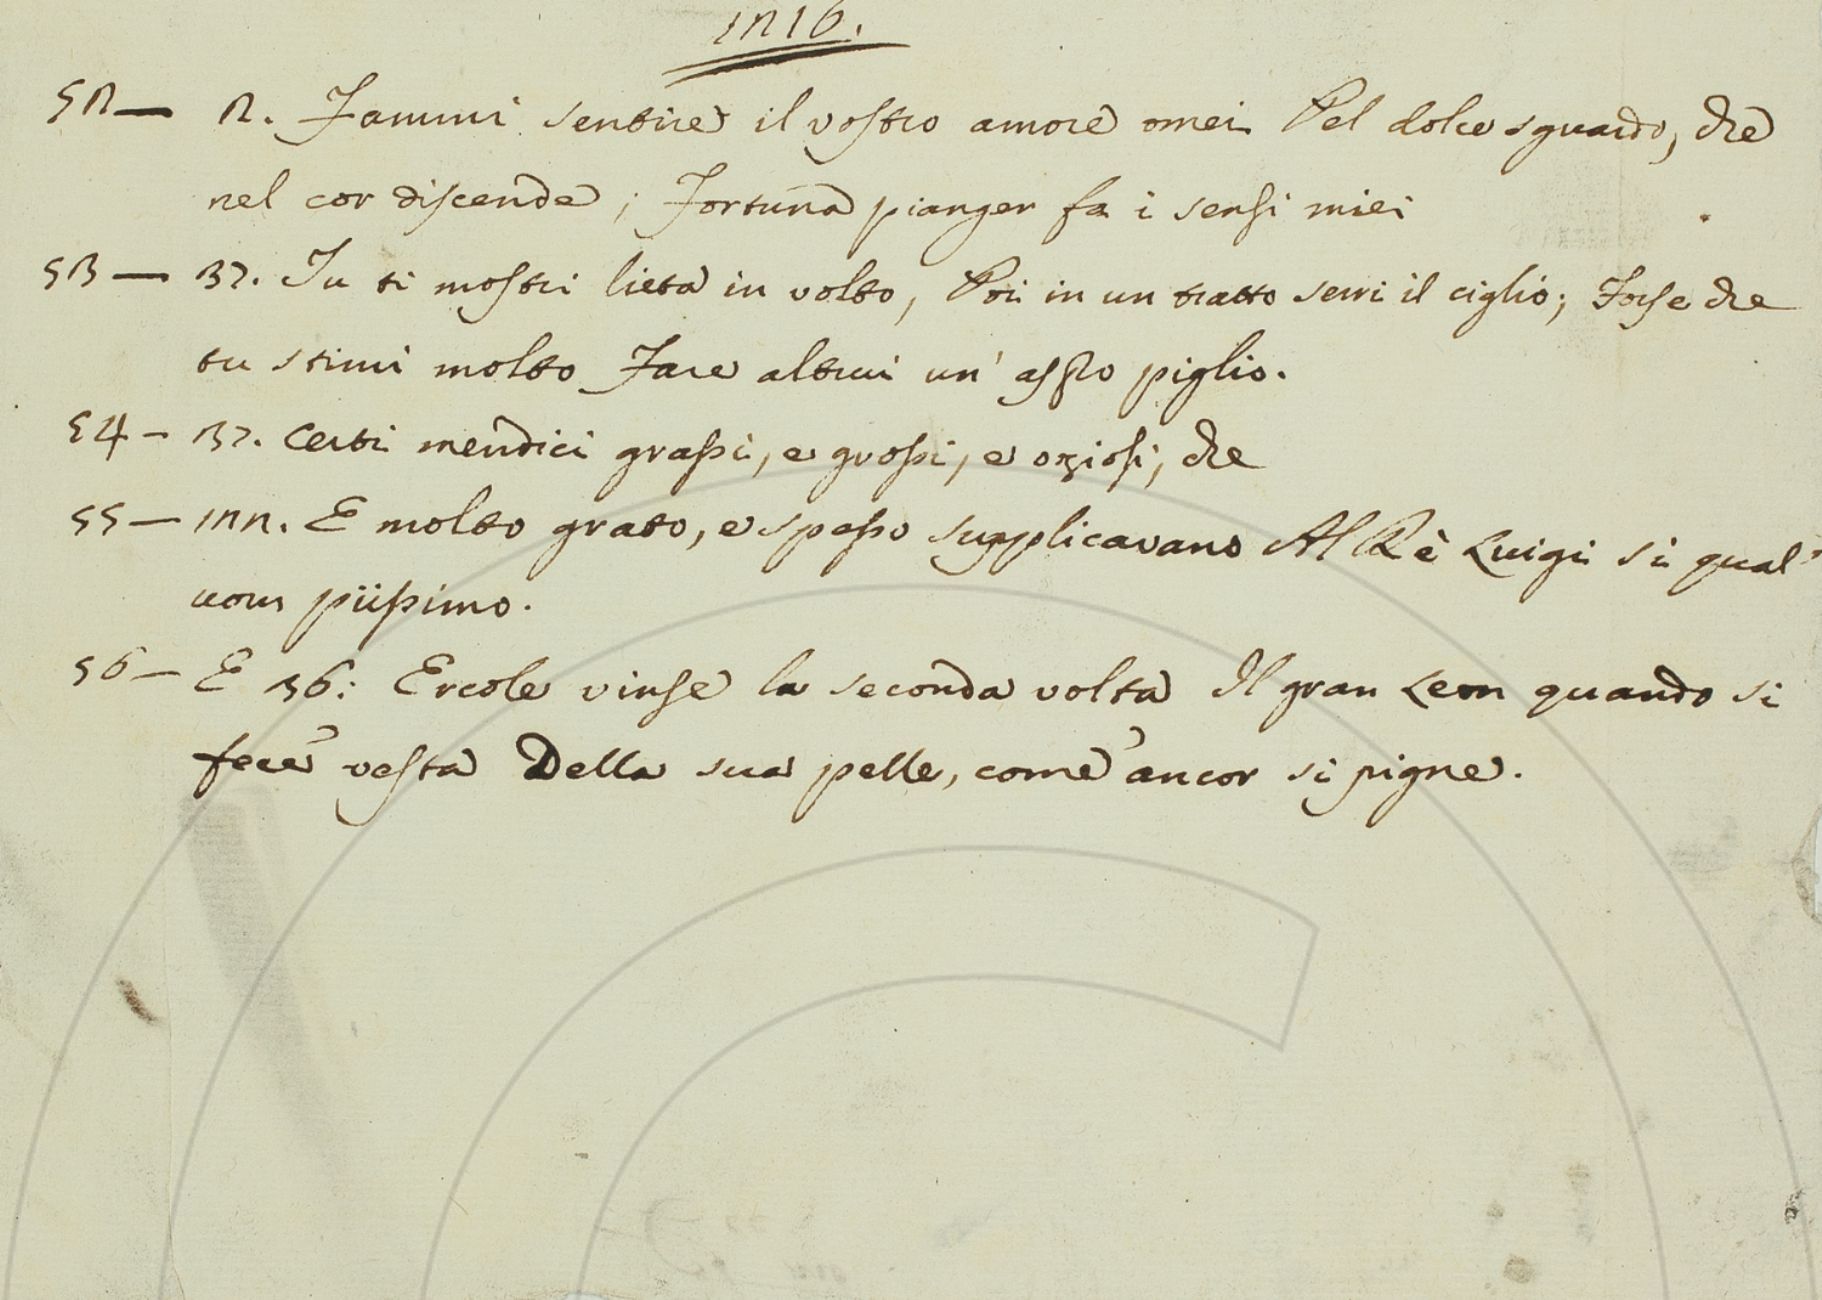 1216.
52— 2. Fammi sentire il vostro amore omei Pel dolce sguardo, che
nel cor discende; Fortuna pianger fa i sensi miei
53— 37. Tu ti mostri lieta in volto, Poi in un tratto serri il ciglio; Forse che
tu stimi molto Fare altrui un' aspro piglio.
54— 37. Certi mendici grassi, e grossi, e oziosi, che
55— 122. E molto grato, e spesso supplicavano Al Rè Luigi sì qual'
uom piissimo.
56— E 36: Ercole vinse la seconda volta Il gran Leon quando si
fece vesta Della sua pelle, come ancor si pigne.